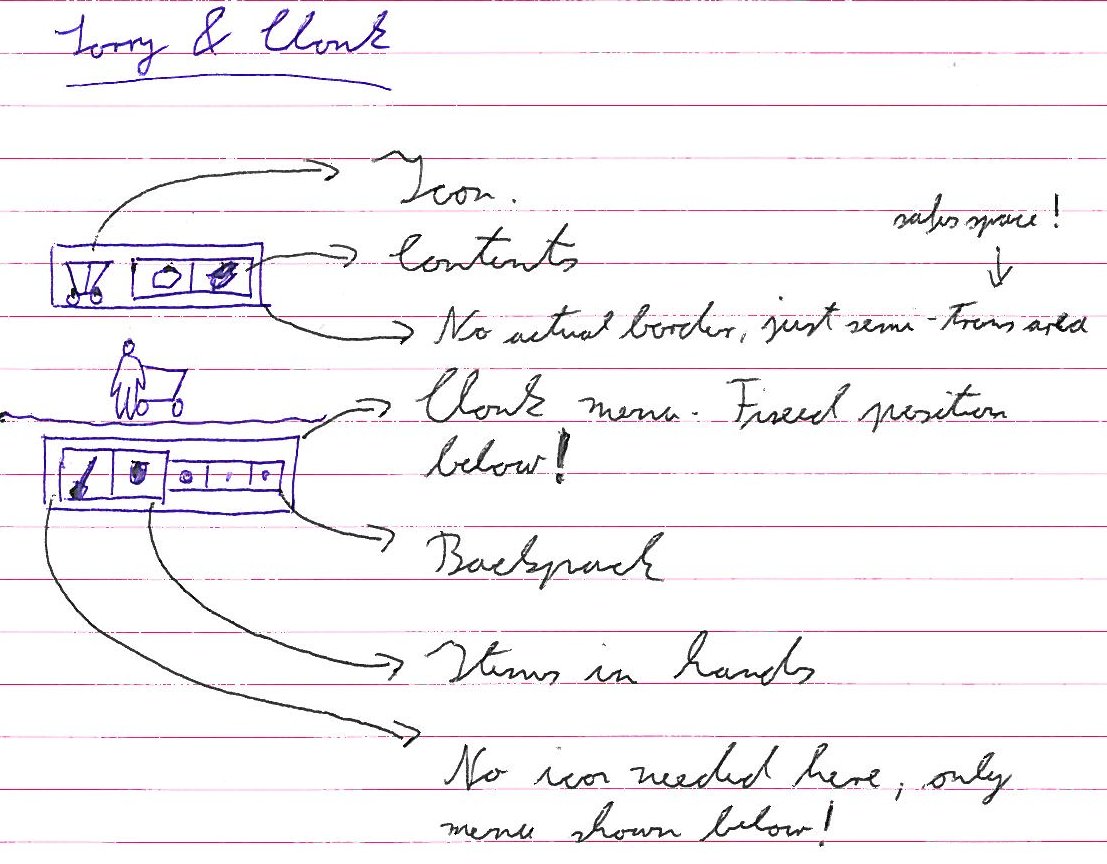 Lorry & Clonk
Icon.
safes space!
Contents
No actual border, just semi-trans area
Clonk menu. Fixed position
below!
Backpack
Items in hands
No icon needed here, only
menu shown below!